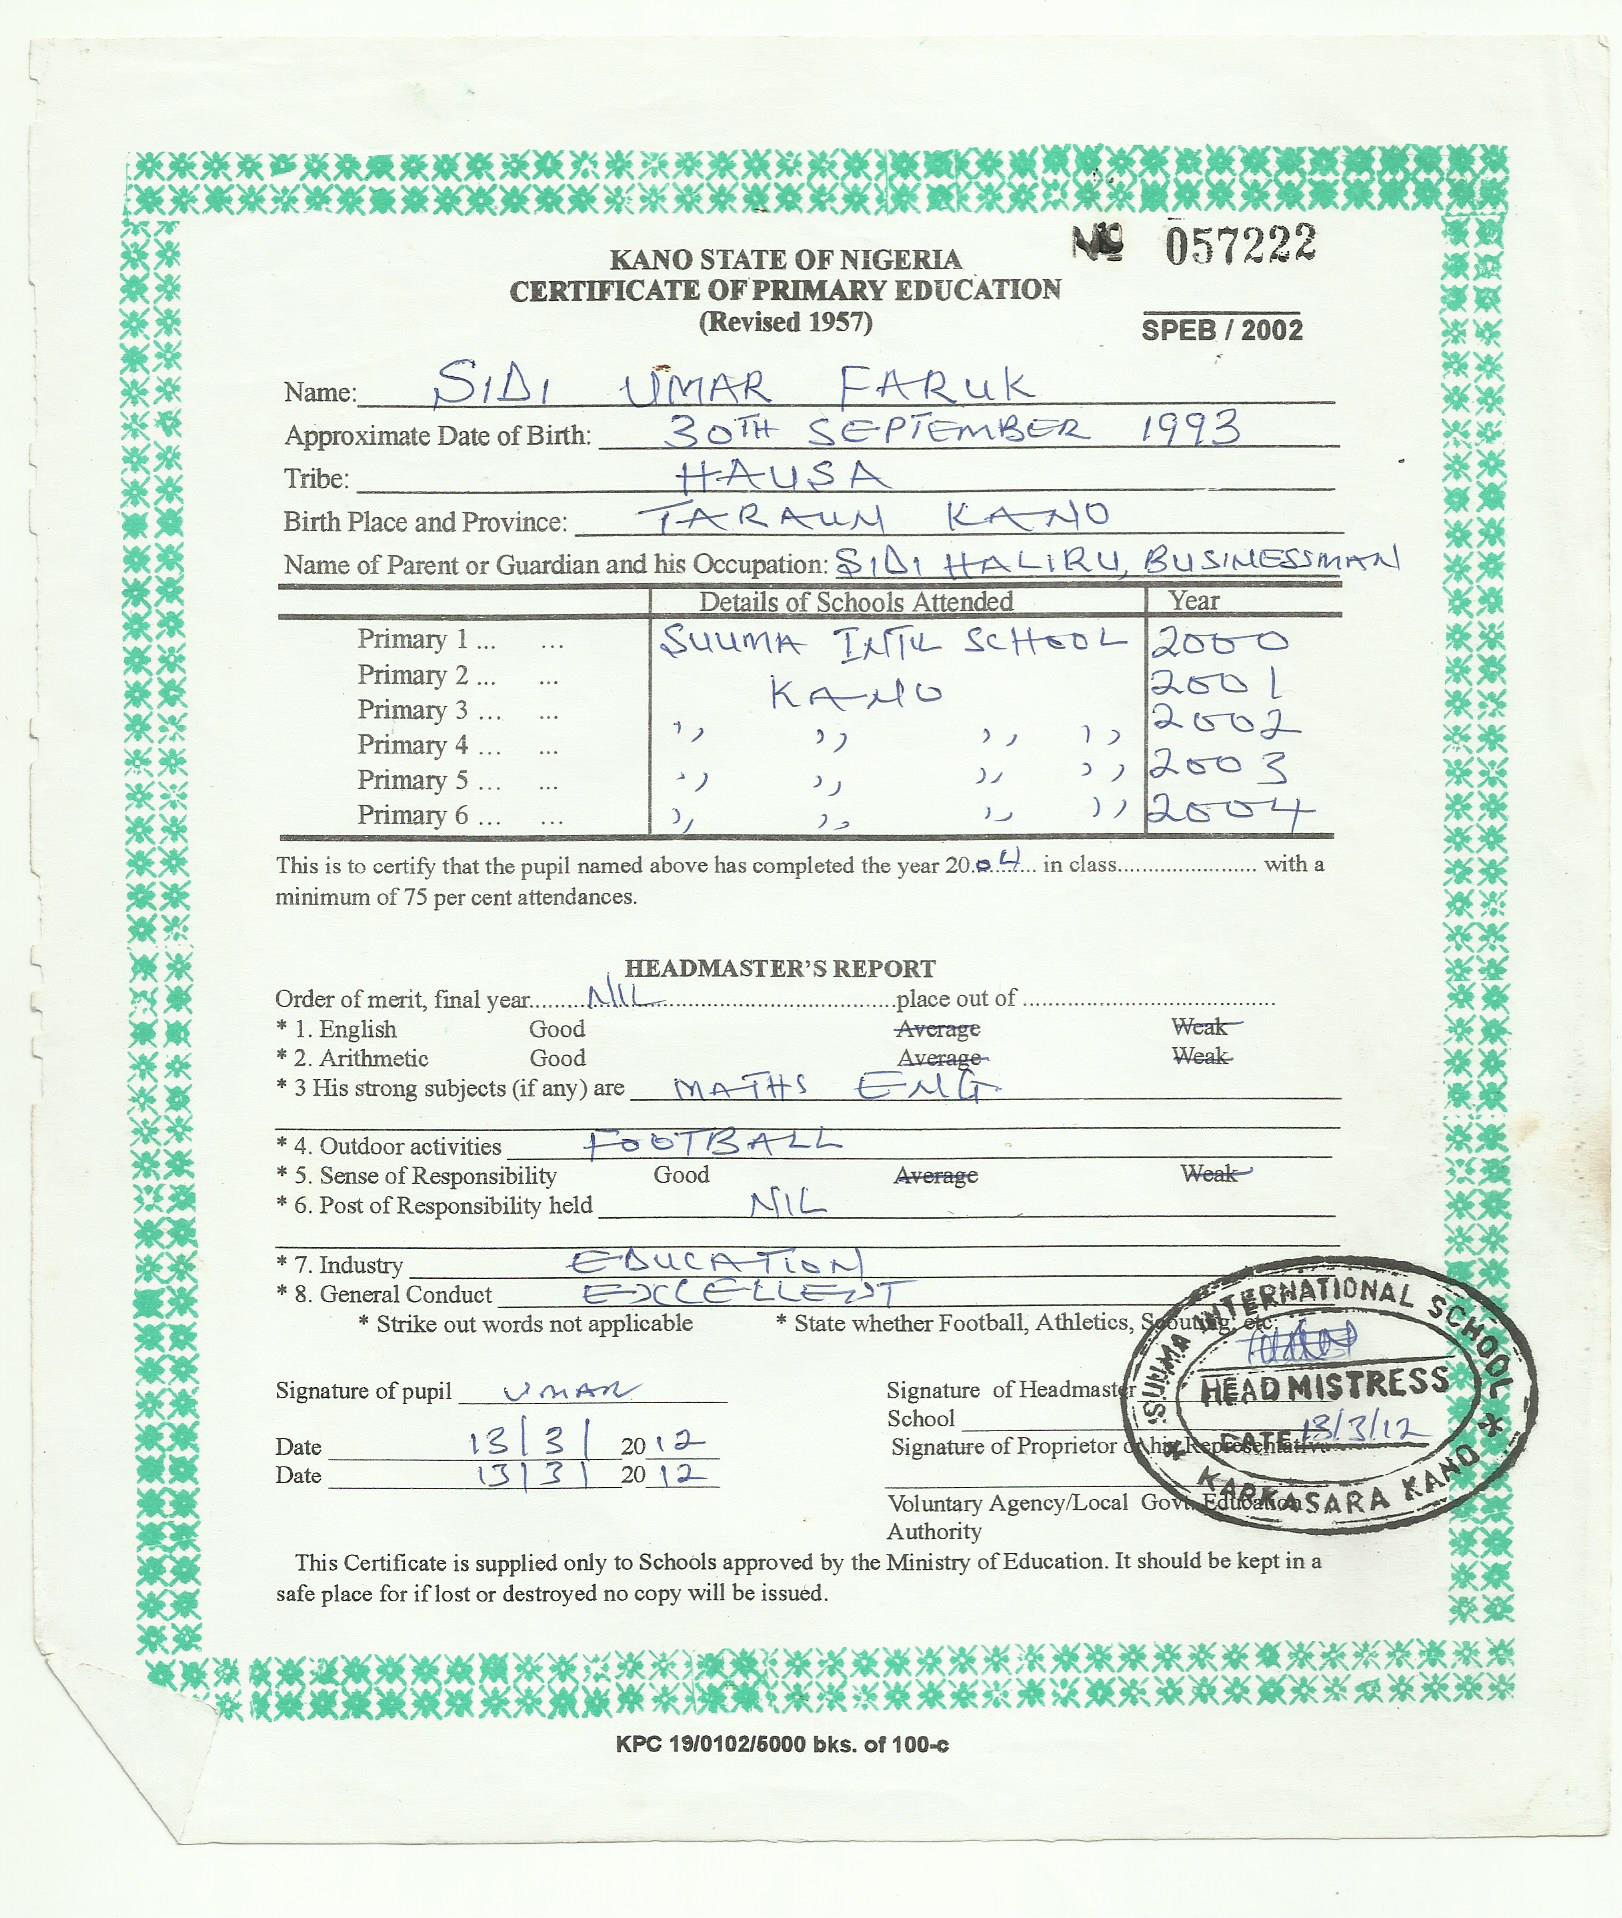 № 057222
KANO STATE OF NIGERIA
CERTIFICATE OF PRIMARY EDUCATION
(Revised 1957)
SPEB / 2002
Name: SIDI UMAR FARUK
Approximate Date of Birth: 30TH SEPTEMBER 1993
Tribe: HAUSA
Birth Place and Province: TARAUNI KANO
Name of Parent or Guardian and his Occupation: SIDI HALIRU, BUSINESSMAN
Details of Schools Attended Year
Primary 1 ... ... SUUMA INT'L SCHOOL 2000
Primary 2 ... ... KANO 2001
Primary 3 ... ... ,, ,, ,, ,, 2002
Primary 4 ... ...
Primary 5 ... ... ,, ,, ,, ,, 2003
Primary 6 ... ... ,, ,, ,, ,, 2004
This is to certify that the pupil named above has completed the year 20.04.... in class....................... with a
minimum of 75 per cent attendances.
HEADMASTER'S REPORT
Order of merit, final year.........NIL.......................................place out of ..........................................
* 1. English Good Average Weak
* 2. Arithmetic Good Average Weak
* 3 His strong subjects (if any) are MATHS ENG
* 4. Outdoor activities FOOTBALL
* 5. Sense of Responsibility Good Average Weak
* 6. Post of Responsibility held NIL
* 7. Industry EDUCATION
* 8. General Conduct EXCELLENT
* Strike out words not applicable * State whether Football, Athletics, Scouting, etc.
Signature of pupil UMAR Signature of Headmaster
School
Date 13/3/ 2012 Signature of Proprietor or his Representative
Date 13/3/ 2012
Voluntary Agency/Local Govt. Education
Authority
SUUMA INTERNATIONAL SCHOOL
HEADMISTRESS
DATE 13/3/12
* KARKASARA KANO *
This Certificate is supplied only to Schools approved by the Ministry of Education. It should be kept in a
safe place for if lost or destroyed no copy will be issued.
KPC 19/0102/5000 bks. of 100-c